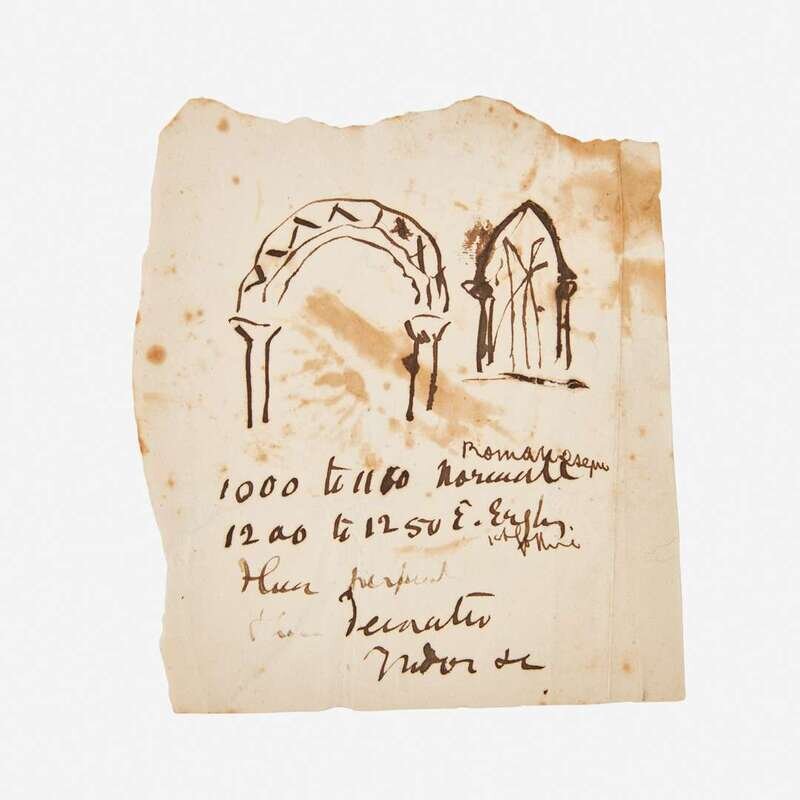 Romanesque
1000 to 1100 Norman
1200 to 1250 E. Engls.
then perpend
then Decorative
Tudor &c